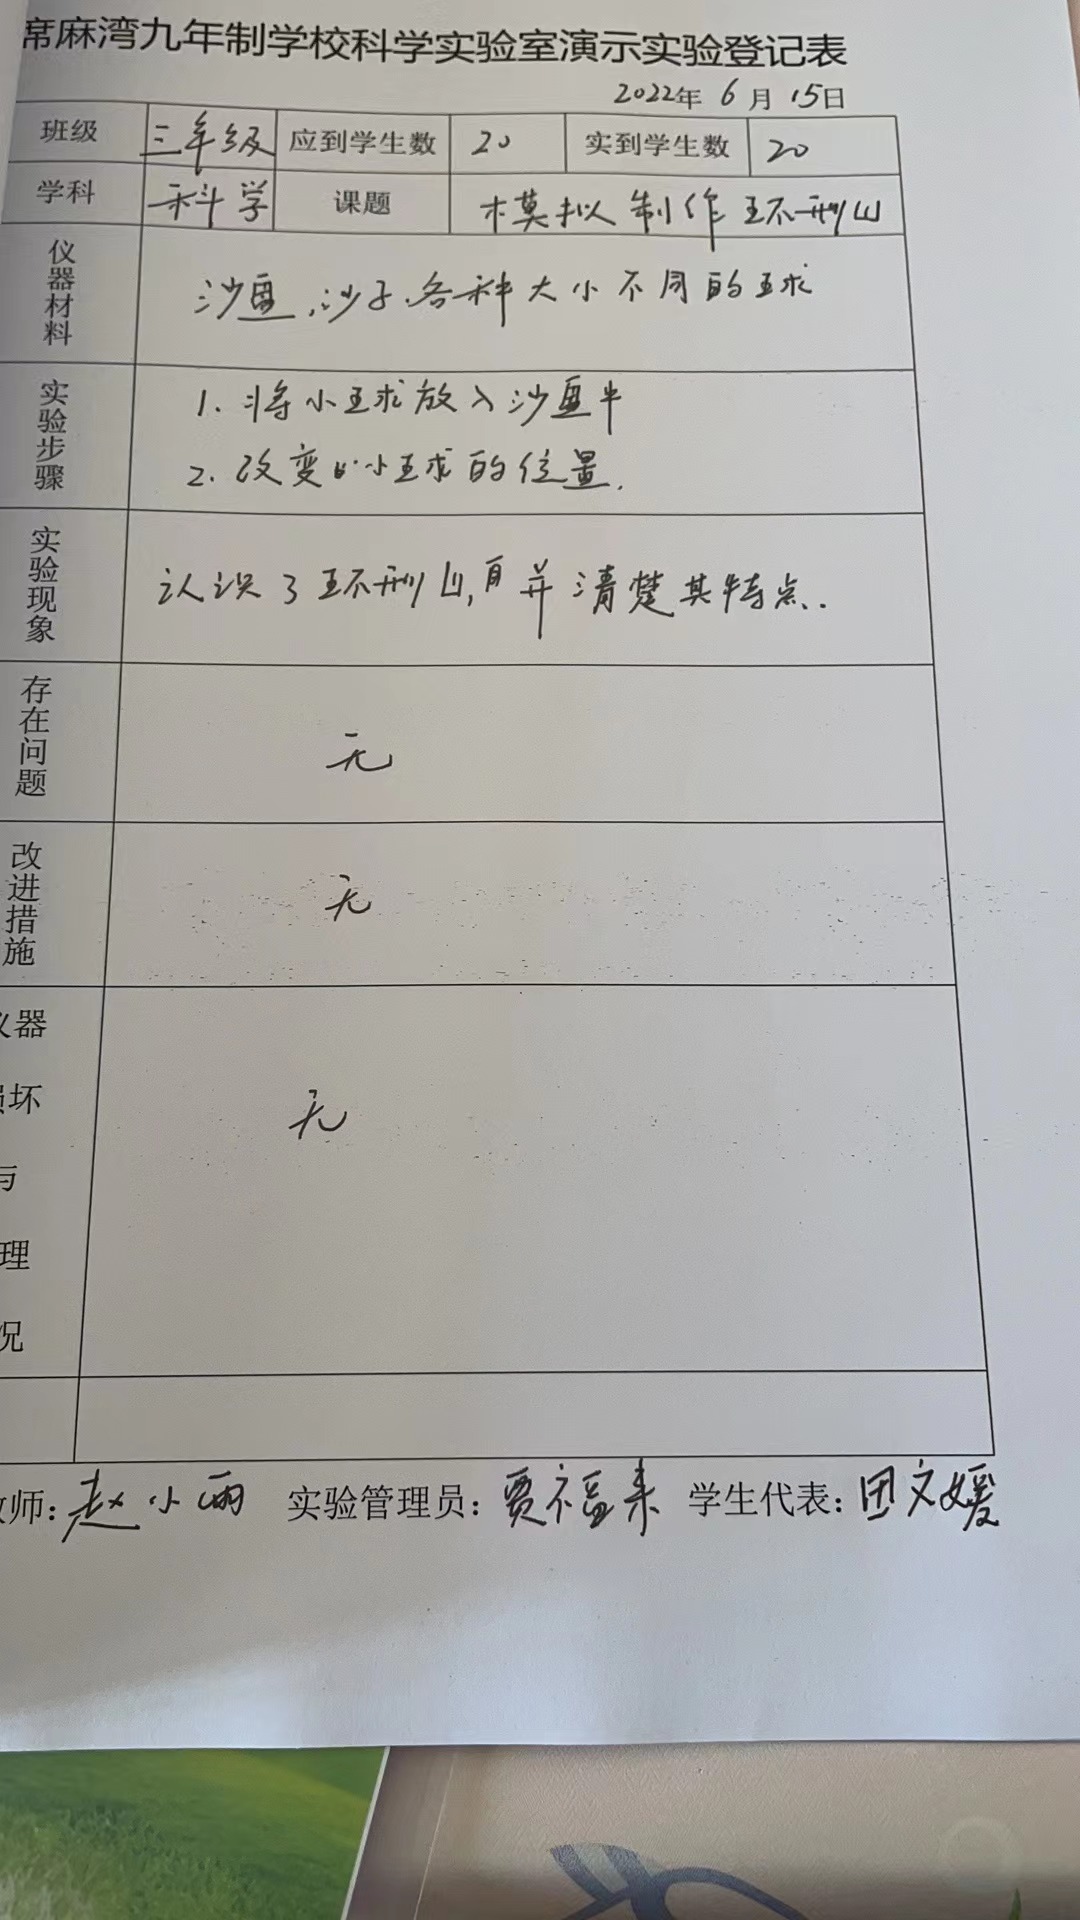 席麻湾九年制学校科学实验室演示实验登记表
2022年 6月 15日
班级 三年级 应到学生数 20 实到学生数 20
学科 科学 课题 模拟制作环形山
仪器材料 沙盘,沙子、各种大小不同的球
实验步骤 1. 将小球放入沙盘中
2. 改变小球的位置.
实验现象 认识了环形山,并清楚其特点.
存在问题 无
改进措施 无
仪器
损坏
与 无
理
况
教师: 赵小雨 实验管理员: 贾福来 学生代表: 文媛